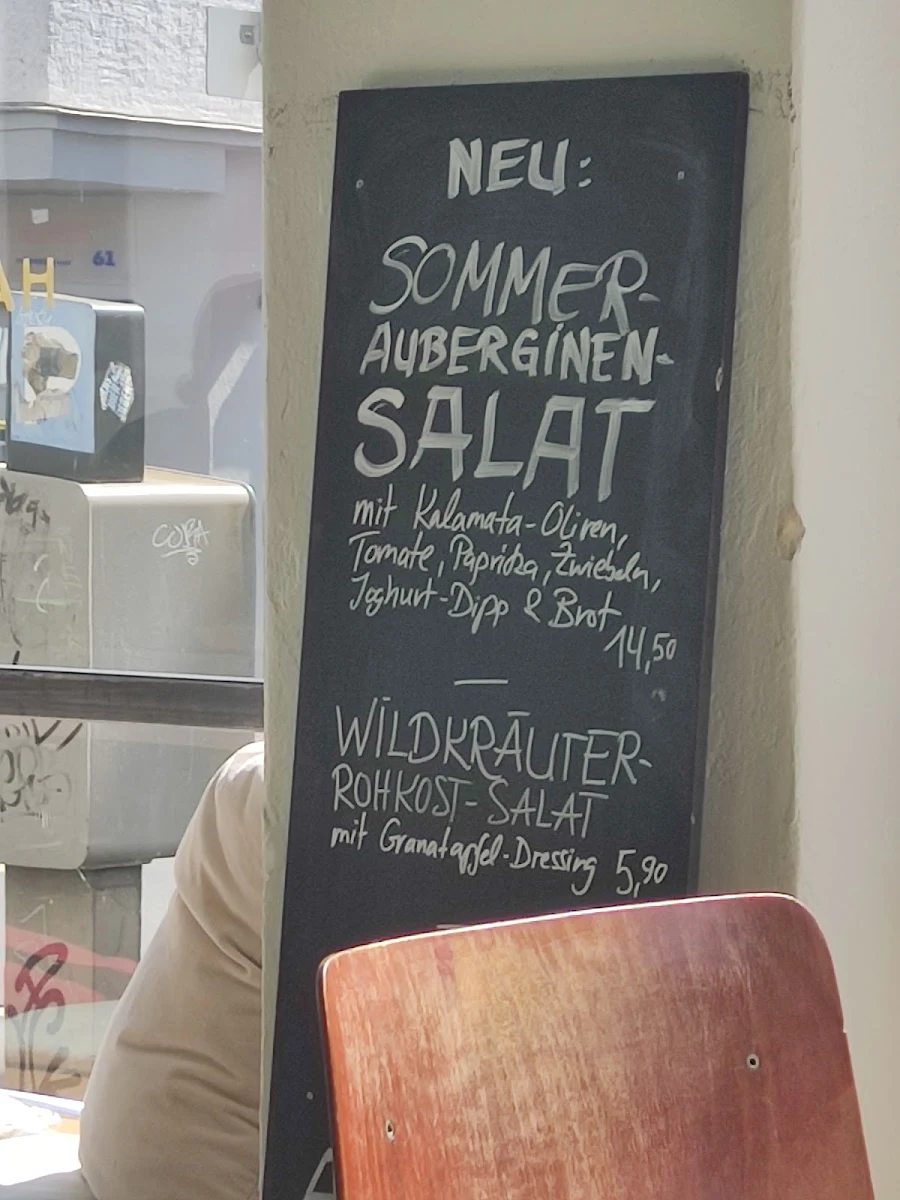 NEU:
SOMMER-
AUBERGINEN-
SALAT
mit Kalamata-Oliven,
Tomate, Paprika, Zwiebeln,
Joghurt-Dipp & Brot
14,50
WILDKRÄUTER-
ROHKOST-SALAT
mit Granatapfel-Dressing 5,90
61
AH
COPA